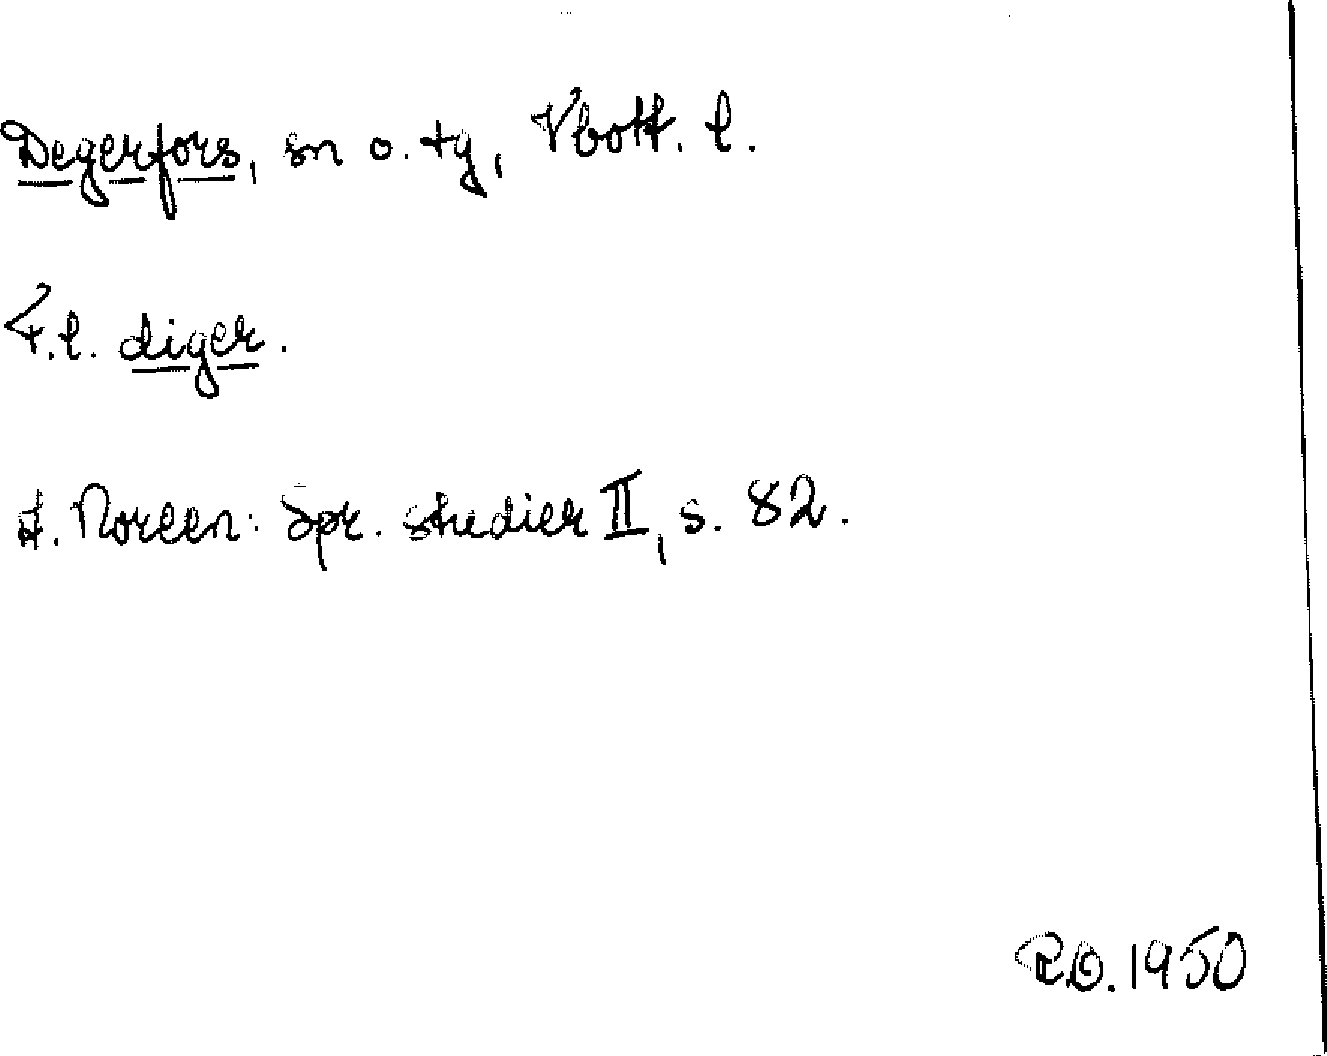 Degerfors, sn o. tg, Vbott. l.
F.l. diger.
A. Noreen: Spr. studier II, s. 82.
R.O. 1950